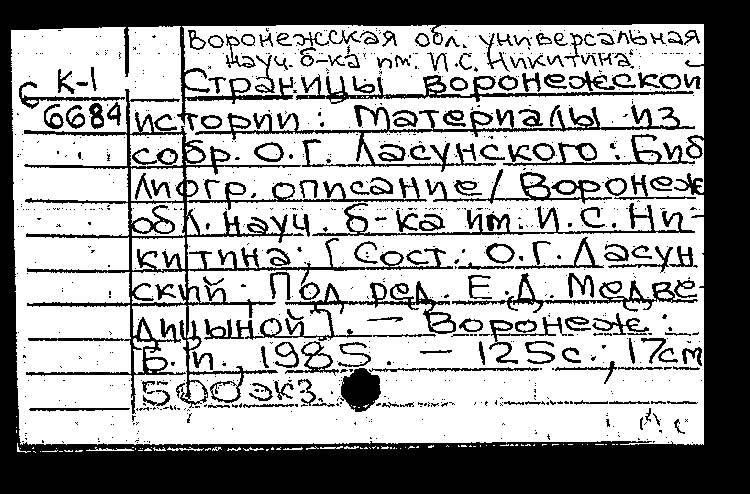 Воронежская обл. универсальная
науч. б-ка им. И.С. Никитина
К-1 Страницы воронежской
С 6684 истории: Материалы из
собр. О.Г. Ласунского: Биб
лиогр. описание / Воронеж
обл. науч. б-ка им. И.С. Ни-
китина; [Сост.: О.Г. Ласун
ский; Под ред. Е.Д. Медве-
дицыной]. — Воронеж:
Б.и., 1985. — 125с.; 17см
500 экз.